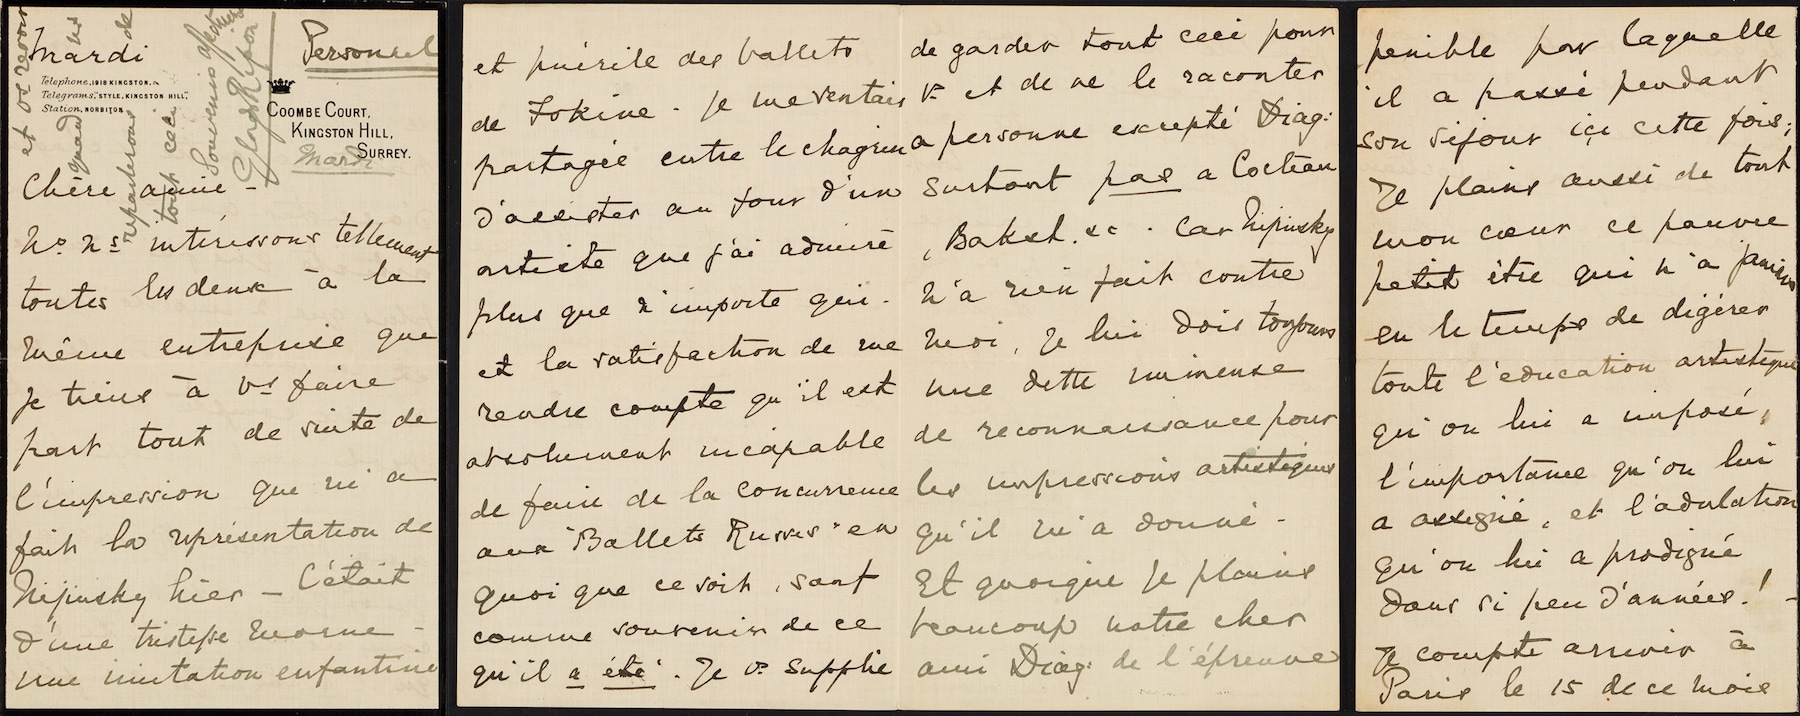 Mardi
Personnel
Telephone, 1918 KINGSTON.
Telegrams, "STYLE, KINGSTON HILL".
Station, NORBITON.
COOMBE COURT,
KINGSTON HILL,
SURREY.
Mardi
Chère amie -
Ns. ns intéressons tellement
toutes les deux à la
même entreprise que
je tiens à vs faire
part tout de suite de
l'impression que m'a
fait la représentation de
Nijinsky hier - C'était
d'une tristesse morne -
une imitation enfantine
et puérile des ballets
de Fokine. Je me sentais
partagée entre le chagrin
d'assister au four d'un
artiste que j'ai admiré
plus que n'importe qui.
et la satisfaction de me
rendre compte qu'il est
absolument incapable
de faire de la concurrence
aux "Ballets Russes" en
quoi que ce soit, sauf
comme souvenir de ce
qu'il a été. Je vs supplie
de garder tout ceci pour
vs et de ne le raconter
a personne excepté Diag:
Surtout pas a Cocteau
, Bakst. &c. Car Nijinsky
n'a rien fait contre
moi, je lui dois toujours
une dette immense
de reconnaissance pour
les impressions artistiques
qu'il m'a donné.
Et quoique je plains
beaucoup notre cher
ami Diag: de l'épreuve
penible par laquelle
il a passé pendant
son séjour içi cette fois;
Je plains aussi de tout
mon cœur ce pauvre
petit être qui n'a jamais
eu le temps de digérer
toute l'education artistique
qu'on lui a imposé,
l'importance qu'on lui
a assigné, et l'adulation
qu'on lui a prodigué
dans si peu d'années! -
Je compte arriver à
Paris le 15 de ce mois
et ns
reparlerons de
tout cela
Souvenirs
Gladys Ripon